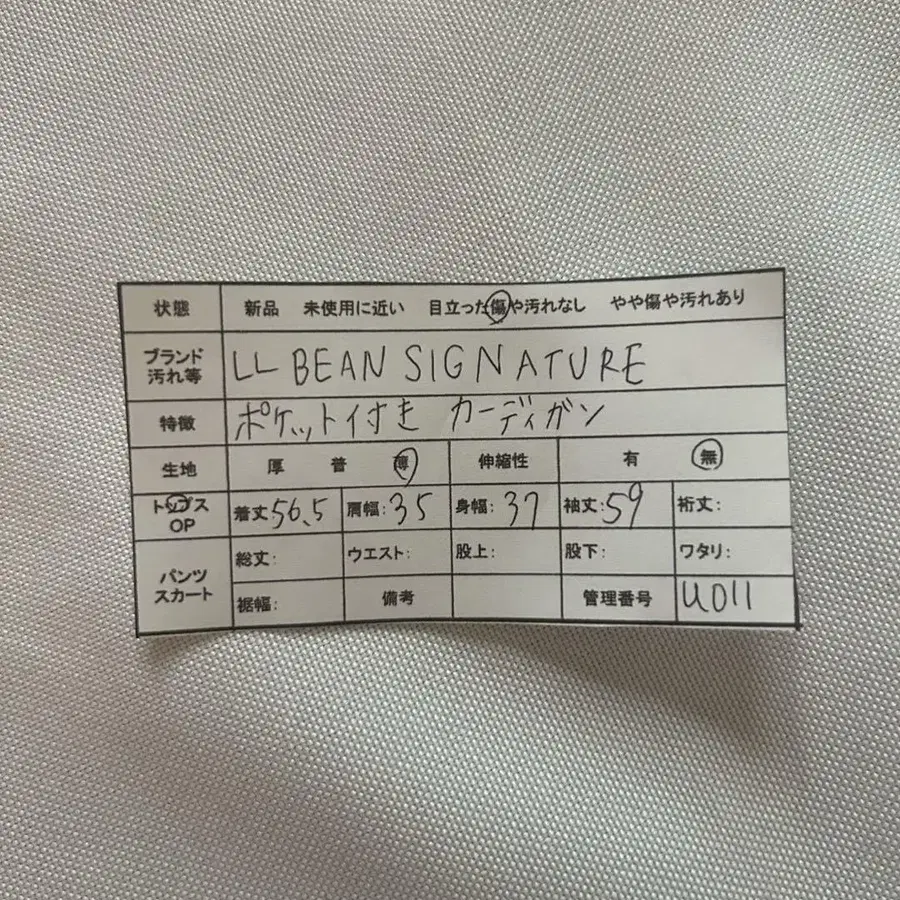 状態 新品 未使用に近い 目立った傷や汚れなし やや傷や汚れあり
ブランド
汚れ等 LL BEAN SIGNATURE
特徴 ポケット付き カーディガン
生地 厚 普 薄 伸縮性 有 無
トップス
OP 着丈56.5 肩幅:35 身幅:37 袖丈:59 裄丈:
パンツ
スカート 総丈: ウエスト: 股上: 股下: ワタリ:
裾幅: 備考 管理番号 U011